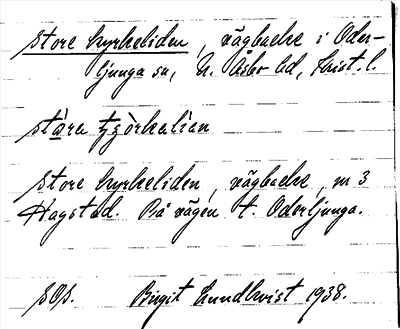 Store kyrkeliden, vägbacke i Oder-
ljunga sn, N. Åsbo hd, Krist. l.
stòra tjörkalian
Store kyrkeliden, vägbacke, m 3
Hagstad. På vägen t. Oderljunga.
SOS. Birgit Lundkvist 1938.